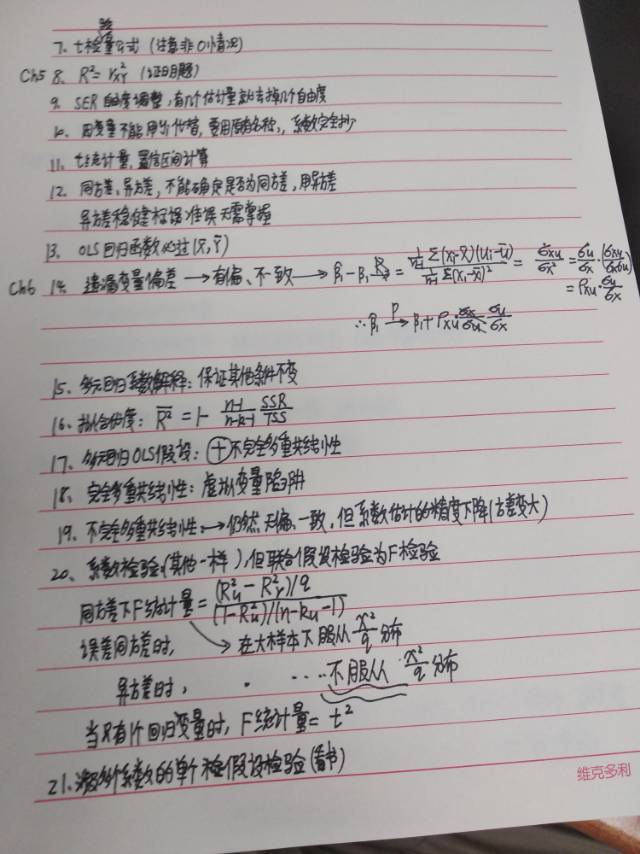 验
7. t检量公式 (注意非0情况)
Ch5 8. R² = r²xy (证明题)
9. SER 自由度调整, 有几个估计量就去掉几个自由度
10. 因变量不能用Y代替, 要用原有名称, 系数完全抄
11. t统计量, 置信区间计算
12. 同方差、异方差, 不能确定是否为同方差, 用异方差
异方差稳健标准误无需掌握
13. OLS回归函数必过(x̄, ȳ)
Ch6 14. 遗漏变量偏差 → 有偏、不一致 → β̂₁ - β₁ = 1/(n-1) Σ(Xi-X̄)(Ui-ū) / 1/(n-1) Σ(Xi-X̄)² = σxu/σx² = σu/σx · (σxu/σxσu)
= ρxu · σu/σx
∴ β̂₁ →p β₁ + ρxu σu/σx
15. 多元回归系数解释: 保证其他条件不变
16. 拟合优度: R̄² = 1- (n-1)/(n-k-1) SSR/TSS
17. 多元回归OLS假设: ⊕不完全多重共线性
18. 完全多重共线性: 虚拟变量陷阱
19. 不完全多重共线性: → 仍然无偏、一致, 但系数估计的精度下降(方差变大)
20. 系数检验(其他一样), 但联合假设检验为F检验
同方差下F统计量 = (Ru² - Rr²)/q / (1-Ru²)/(n-ku-1)
误差同方差时, → 在大样本下服从 x²/q 分布
异方差时, · ····不服从 x²/q 分布
当只有1个回归变量时, F统计量 = t²
21. 多个系数的单个假设检验(看书)
维克多利